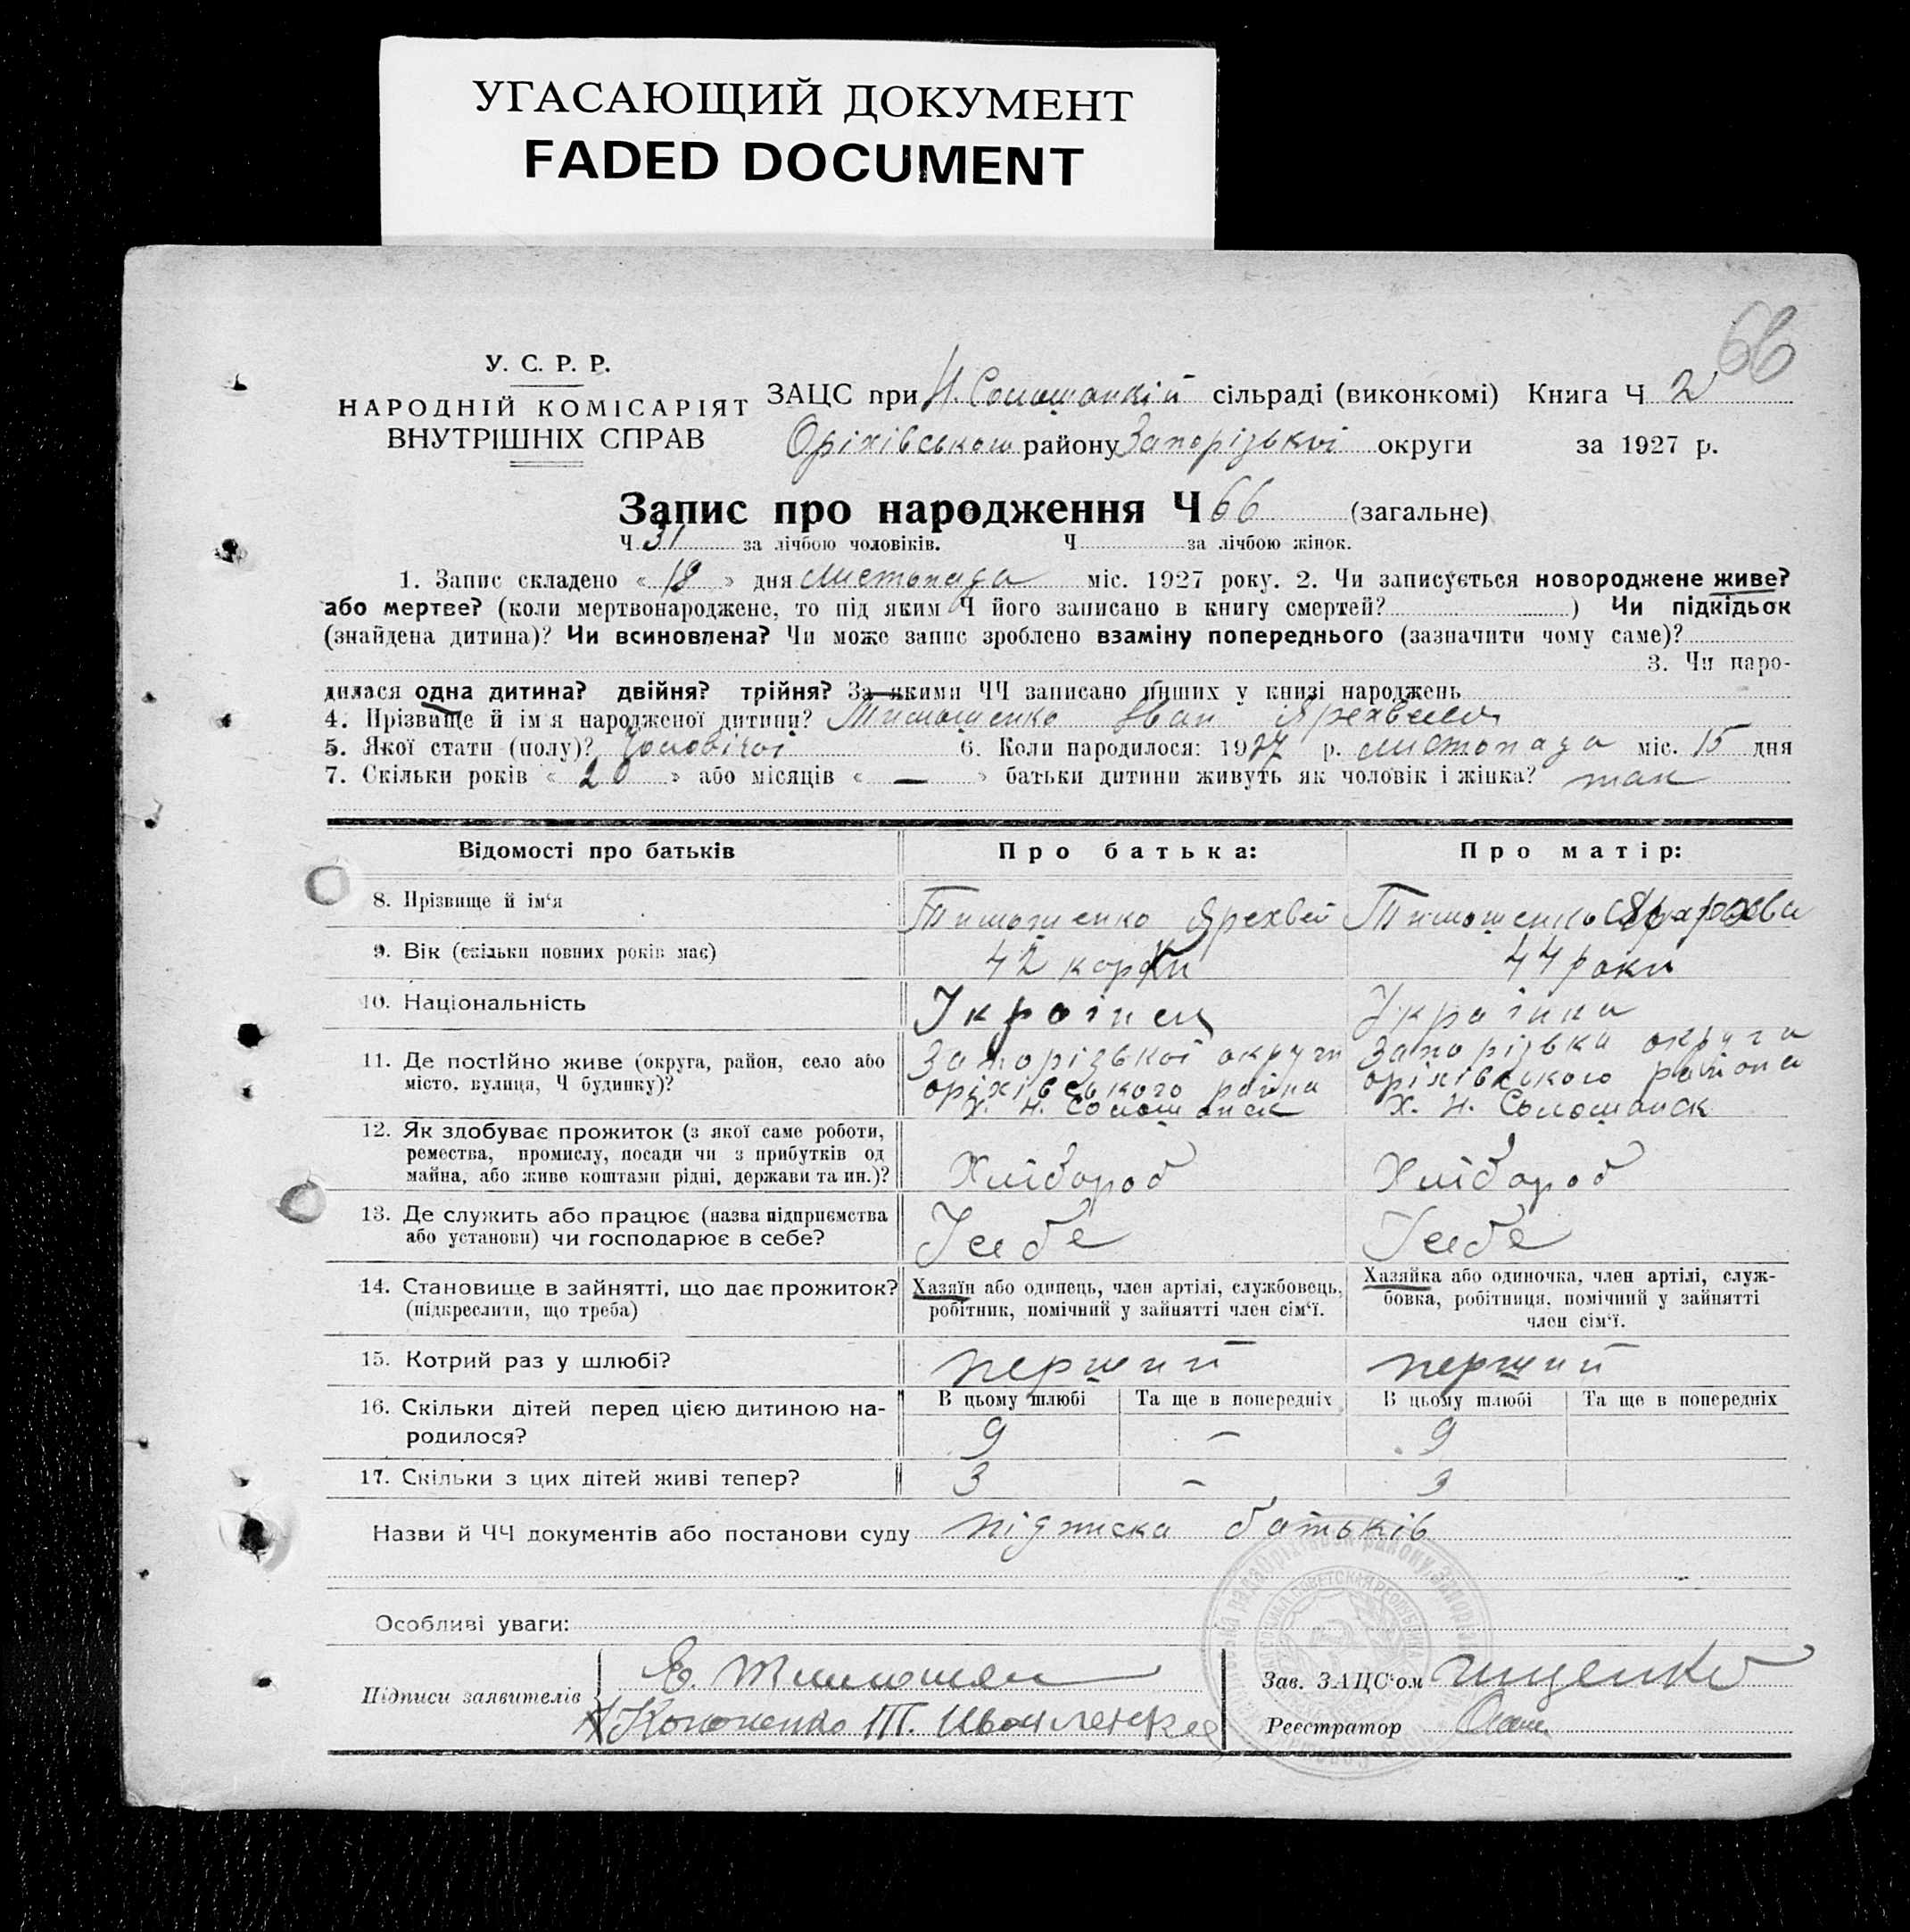 УГАСАЮЩИЙ ДОКУМЕНТ
FADED DOCUMENT
66
У. С. Р. Р.
НАРОДНІЙ КОМІСАРІЯТ
ВНУТРІШНІХ СПРАВ
ЗАЦС при Н. Солошанкій сільраді (виконкомі) Книга Ч 2
Оріхівського району Запорізької округи за 1927 р.
Запис про народження Ч 66 (загальне)
Ч 31 за лічбою чоловіків. Ч за лічбою жінок.
1. Запис складено « 18 » дня листопада міс. 1927 року. 2. Чи записується новороджене живе?
або мертве? (коли мертвонароджене, то під яким Ч його записано в книгу смертей? ) Чи підкідьок
(знайдена дитина)? Чи всиновлена? Чи може запис зроблено взаміну попереднього (зазначити чому саме)?
3. Чи наро-
дилася одна дитина? двійня? трійня? За якими ЧЧ записано инших у книзі народжень
4. Прізвище й ім'я народженої дитини? Тимошенко Іван
5. Якої стати (полу)? Чоловічої 6. Коли народилося: 1927 р. листопада міс. 15 дня
7. Скільки років « 20 » або місяців « — » батьки дитини живуть як чоловік і жінка? так
Відомості про батьків Про батька: Про матір:
8. Прізвище й ім'я Тимошенко Тимошенко
9. Вік (скільки повних років має) 42 44 роки
10. Національність Українец Українка
11. Де постійно живе (округа, район, село або Запорізької округи Запорізька округа
місто, вулиця, Ч будинку)? оріхівського района оріхівського района
Х. Н. Солошанск Х. Н. Солошанск
12. Як здобуває прожиток (з якої саме роботи,
ремества, промислу, посади чи з прибутків од
майна, або живе коштами рідні, держави та ин.)? Хлібороб Хлібороб
13. Де служить або працює (назва підприємства
або установи) чи господарює в себе? У себе У себе
14. Становище в зайнятті, що дає прожиток? Хазяїн або одинець, член артілі, службовець, Хазяйка або одиночка, член артілі, служ-
(підкреслити, що треба) робітник, помічний у зайнятті член сім'ї. бовка, робітниця, помічний у зайнятті
член сім'ї.
15. Котрий раз у шлюбі? перший перший
16. Скільки дітей перед цією дитиною на- В цьому шлюбі Та ще в попередніх В цьому шлюбі Та ще в попередніх
родилося? 9 – 9
17. Скільки з цих дітей живі тепер? 3 – 3
Назви й ЧЧ документів або постанови суду підписка батьків
Особливі уваги:
Підписи заявителів Зав. ЗАЦС'ом Іщенко
Кононенко Реєстратор